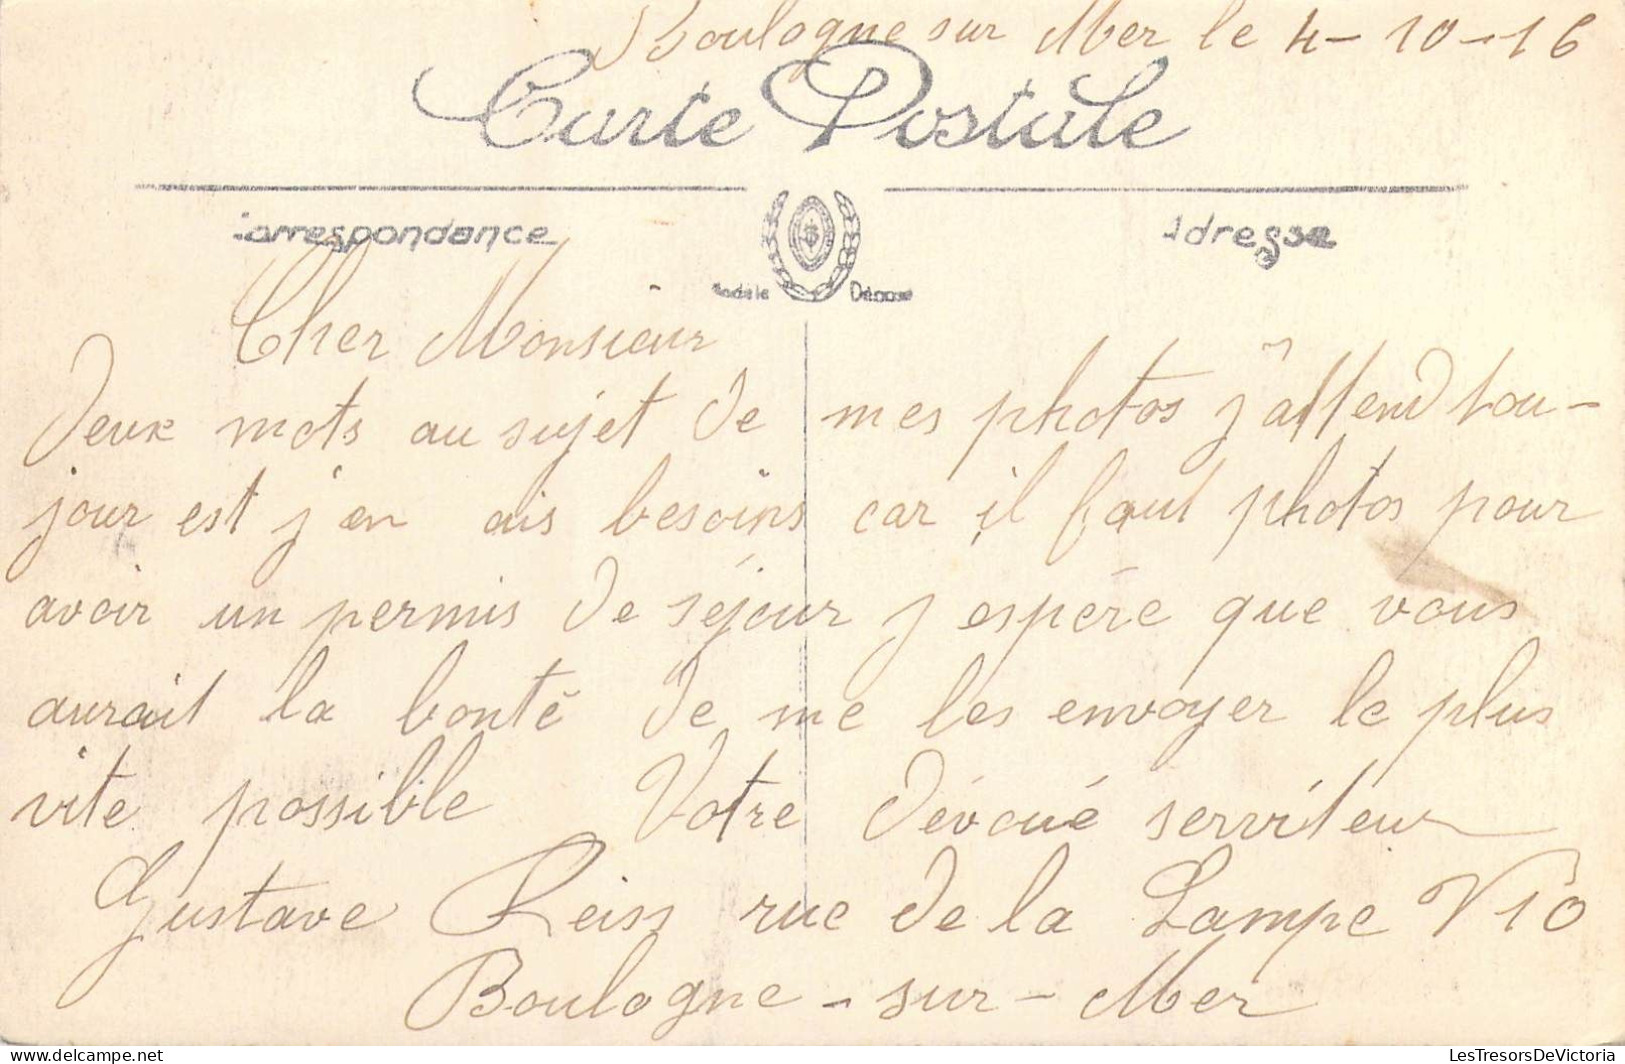 Boulogne sur Mer le 4-10-16
Carte Postale
Correspondance
Adresse
Modèle Déposé
Cher Monsieur
Deux mots au sujet de mes photos j'attend tou-
jour est j'en ais besoins car il faut photos pour
avoir un permis de séjour j espère que vous
aurait la bonté de me les envoyer le plus
vite possible Votre dévoué serviteur
Gustave Reiss rue de la Lampe N 10
Boulogne-sur-Mer
LesTresorsDeVictoria
www.delcampe.net